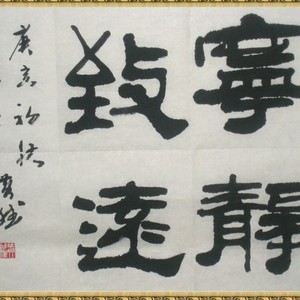 寧靜
致遠
庚寅初秋